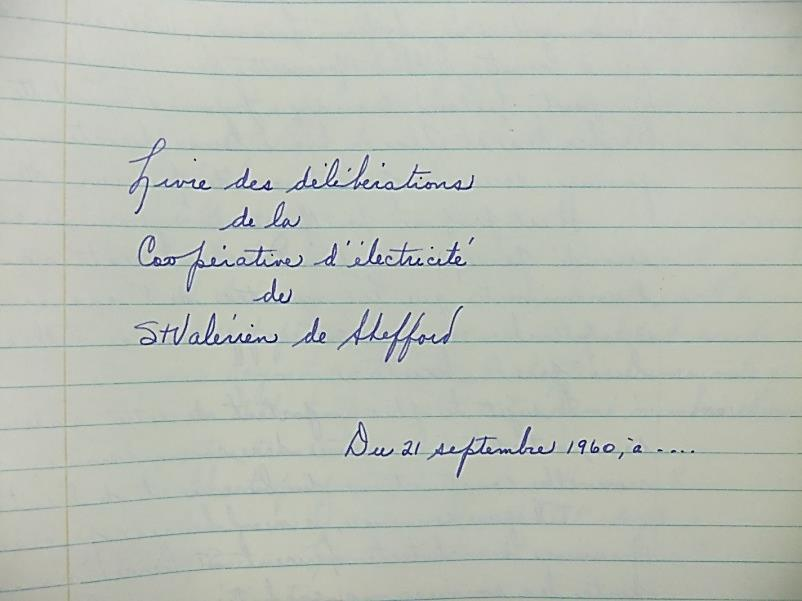 Livre des délibérations
de la
Coopérative d'électricité
de
St Valérien de Shefford
Du 21 septembre 1960, à ....